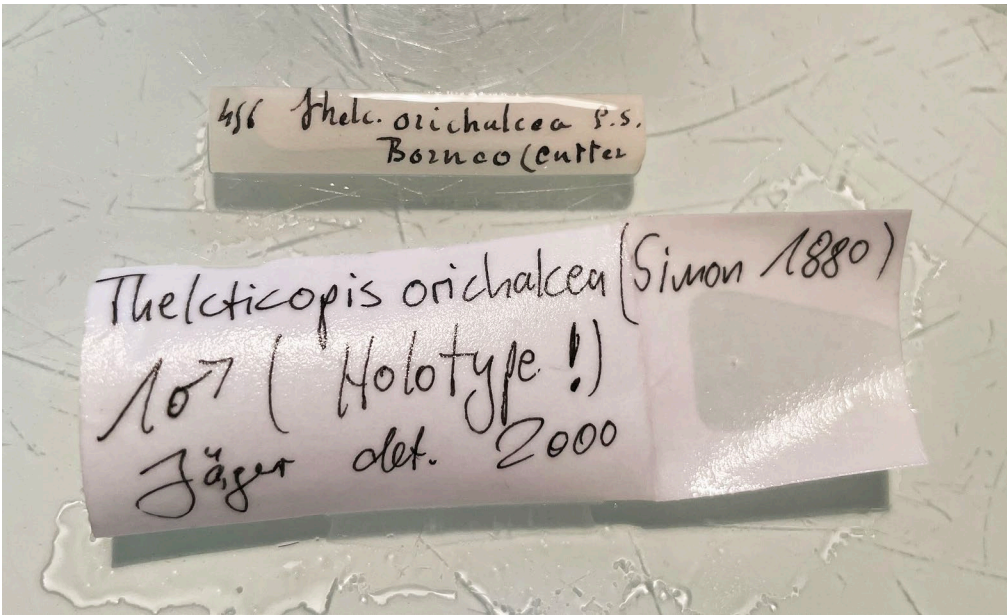 456 Thelc. orichalcea P.S.
Borneo (Cutter
Thelcticopis orichalcea (Simon 1880)
1♂ (Holotype!)
Jäger det. 2000